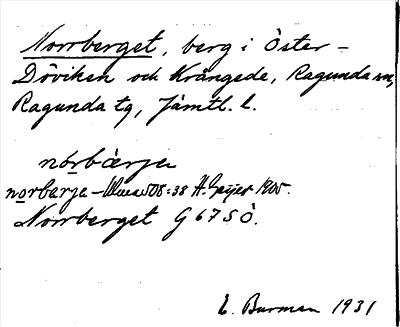 Norrberget, berg i Öster-
Döviken och Krångede, Ragunda sn,
Ragunda tg, Jämtl. l.
nórbàrja
norbarja – 08:38 H. Geijer 1905.
Norrberget G 67 SÖ.
E. Burman 1931